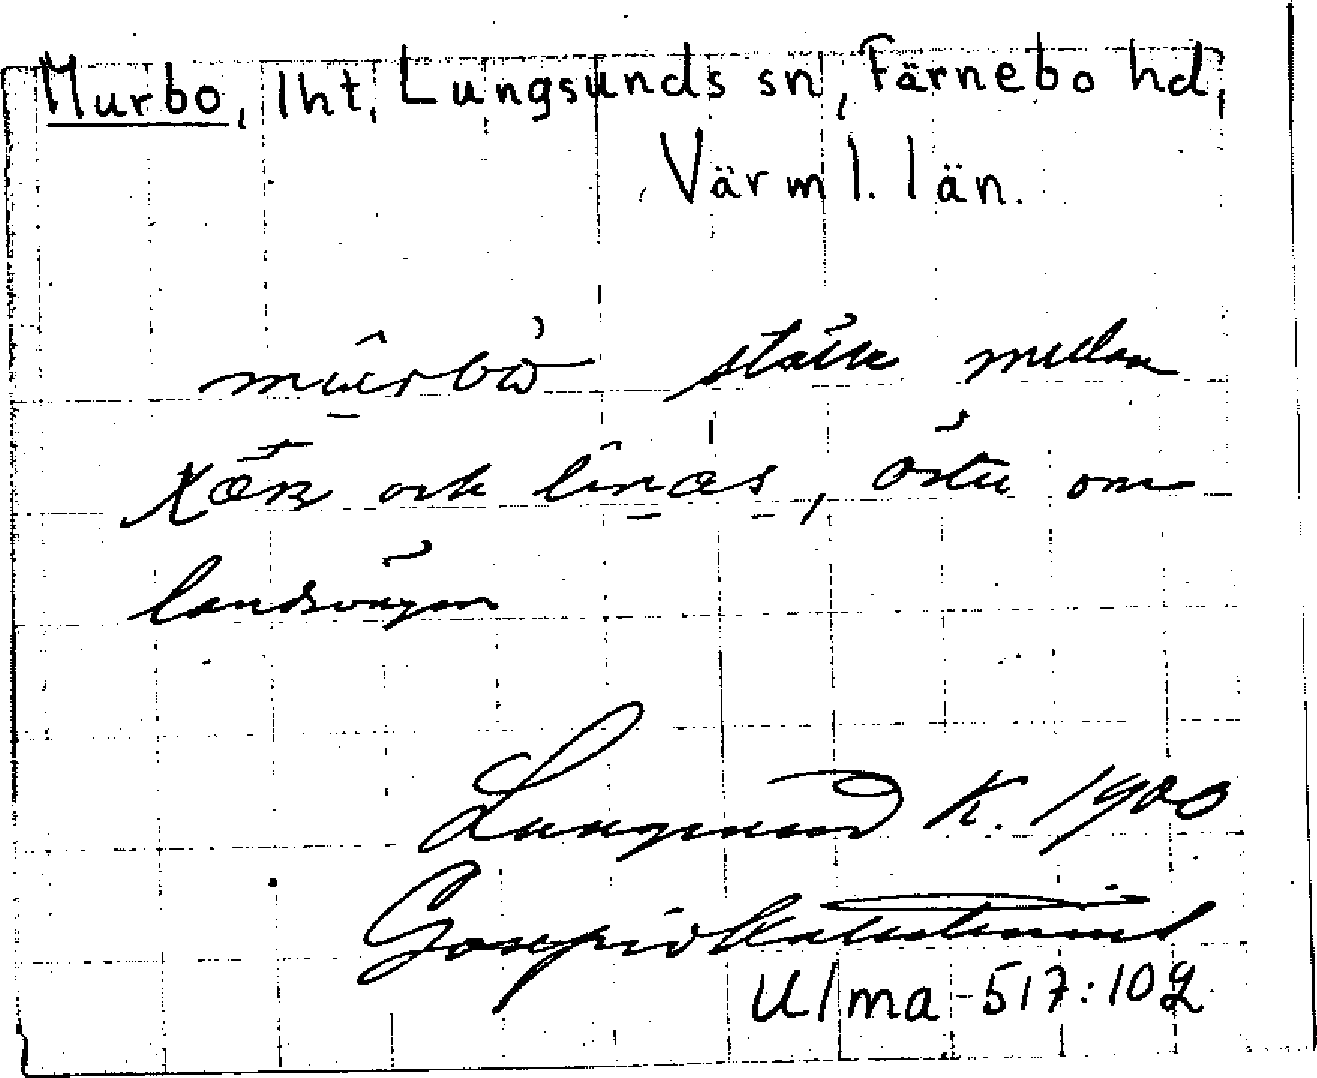 Murbo, lht, Lungsunds sn, Färnebo hd,
Värml. län.
mûrbò ställe mellan
och lînæs, öster om
landsvägen
Lungsund K. 1900
Ulma 517:10